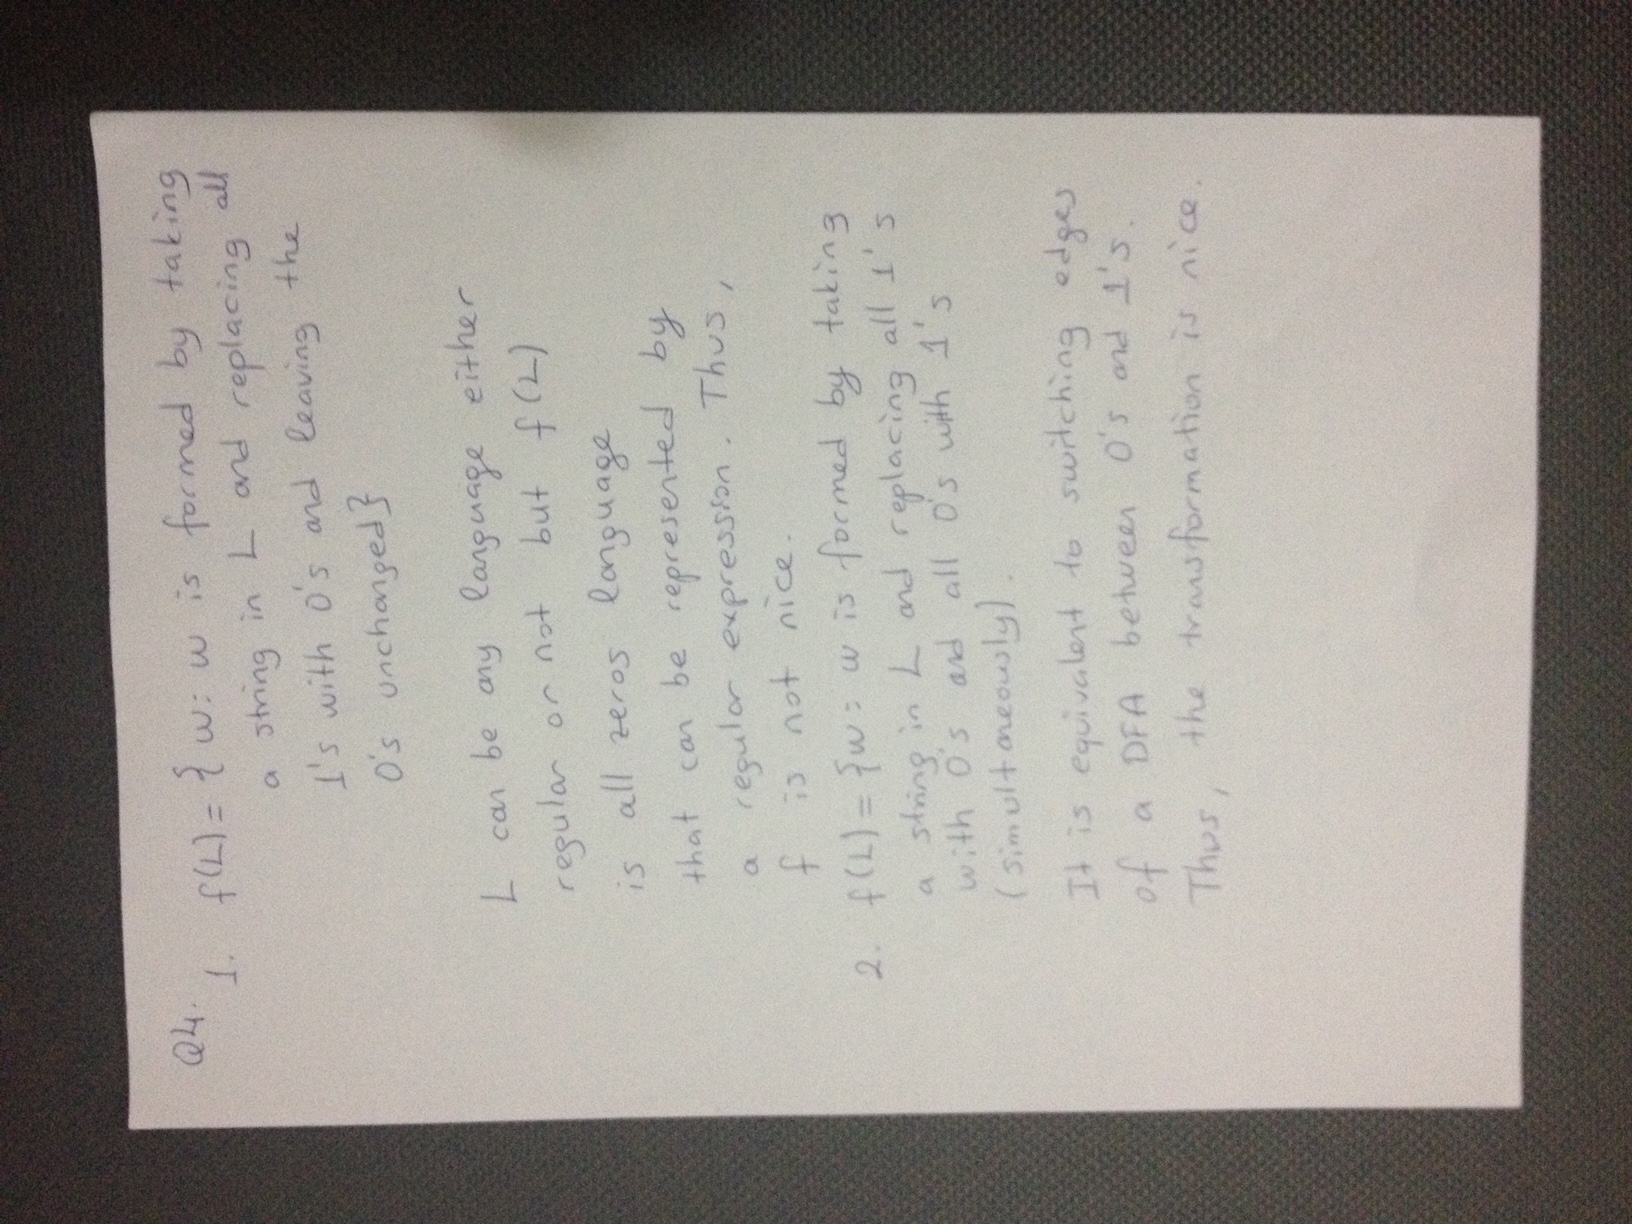 Q4.
1. f(L) = { w: w is formed by taking
a string in L and replacing all
1's with 0's and leaving the
0's unchanged}
L can be any language either
regular or not but f(L)
is all zeros language
that can be represented by
a regular expression. Thus,
f is not nice.
2. f(L) = {w: w is formed by taking
a string in L and replacing all 1's
with 0's and all 0's with 1's
(simultaneously).
It is equivalent to switching edges
of a DFA between 0's and 1's.
Thus, the transformation is nice.